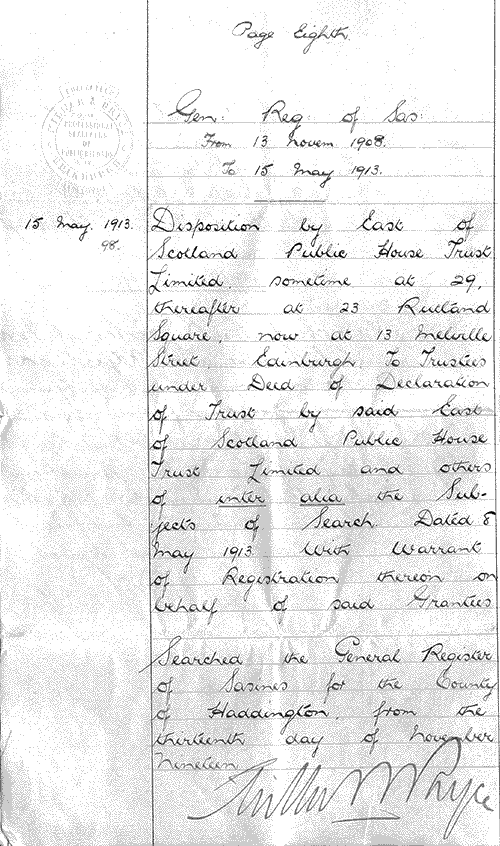 Page Eighth
Gen: Reg: of Sas:
From 13 Novem. 1908.
To 15 May 1913.
15 May. 1913.
98.
Disposition by East of
Scotland Public House Trust
Limited, sometime at 29,
thereafter at 23 Rutland
Square, now at 13 Melville
Street, Edinburgh, To Trustees
under Deed of Declaration
of Trust by said East
of Scotland Public House
Trust Limited and others
of inter alia the Sub-
jects of Search Dated 8
May 1913 With Warrant
of Registration thereon on
behalf of said Grantees
Searched the General Register
of Sasines for the County
of Haddington, from the
thirteenth day of November
Nineteen